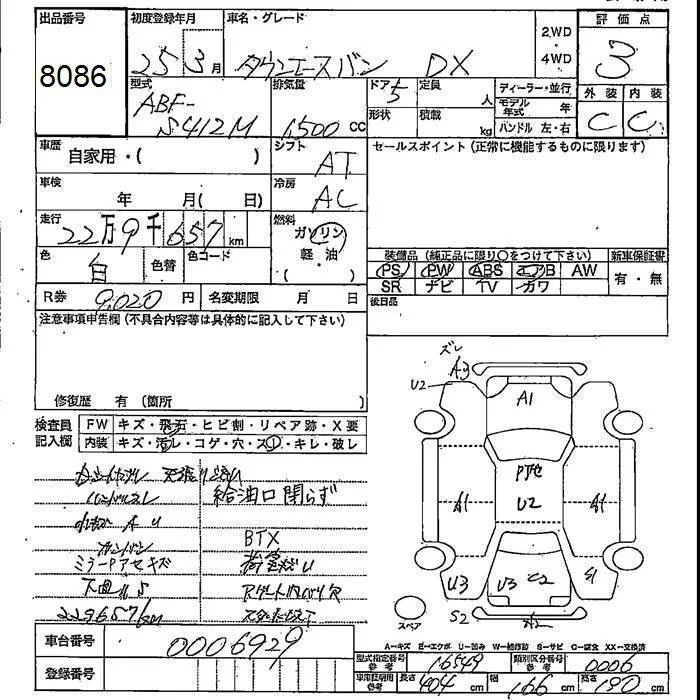 出品番号 初度登録年月 車名・グレード 2.WD 4WD 評価点
8086 25 3月 タウンエースバン DX 3
型式 排気量 ドア 定員 ディーラー・並行 外装 内装
ABF- 5 人 モデル年式 年
S412M 1,500 cc 形状 積載 kg ハンドル 左・右 C C
車歴 自家用・( ) シフト AT セールスポイント(正常に機能するものに限ります)
車検 年 月( 日) 冷房 AC
走行 22万9千657km 燃料 ガソリン 軽・油
色 白 色替 色コード 装備品(純正品に限り○をつけて下さい) 新車保証書
PS PW ABS エアB AW 有・無
SR ナビ TV カワ
R券 9,020円 名変期限 月 日 後日品
注意事項申告欄(不具合内容等は具体的に記入して下さい)
修復歴 有(箇所 )
検査員記入欄 FW キズ・飛石・ヒビ割・リペア跡・X要
内装 キズ・汚レ・コゲ・穴・スレ・キレ・破レ
ハンドルスレ 給油口閉らず
BTX
ミラーPアセキズ
229657km
ズレ
A3
U2
A1
U2
A1
A1
U3
U3
C2
S1
S2
スペア
A=キズ E=エクボ U=凹み W=補修跡 S=サビ C=腐食 XX=交換済
車台番号 0006929
型式指定番号 参考 16549 類別区分番号 参考 0006
登録番号
車庫証明用 参考 長さ 404cm 幅 166cm 高さ 190cm